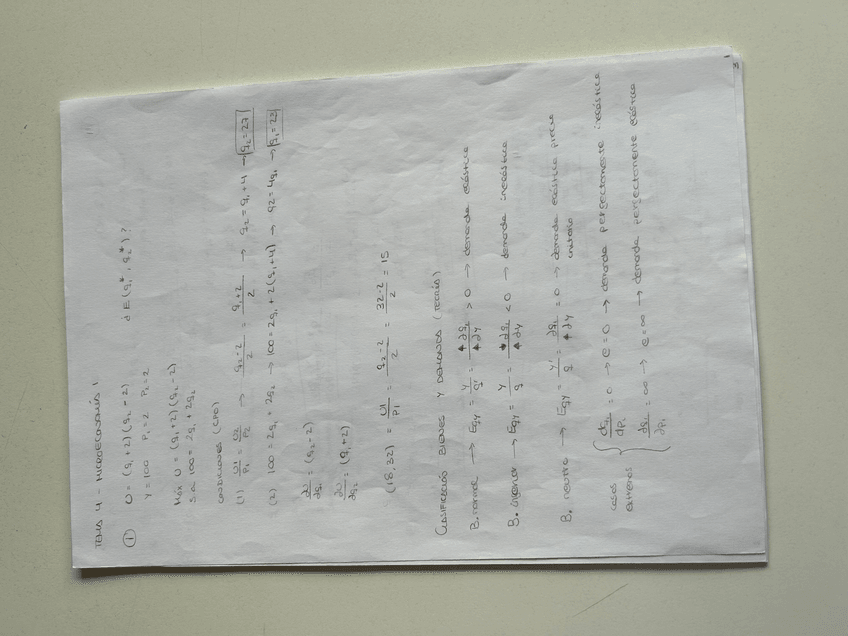 TEMA 4 - MICROECONOMÍA 1
① U = (q₁+2)(q₂-2) d E (q₁*, q₂*)?
Y = 100 P₁=2 P₂=2
Máx U = (q₁+2)(q₂-2)
S.a 100 = 2q₁ + 2q₂
CONDICIONES (CPO)
(1) U1/P1 = U2/P2 → q₂-2/2 = q₁+2/2 → q₂ = q₁+4 → q₂=27
(2) 100 = 2q₁ + 2q₂ → 100 = 2q₁ + 2(q₁+4) → → q₁=23
∂U/∂q₁ = (q₂-2)
∂U/∂q₂ = (q₁+2)
(18,32) = U1/P1 = q₂-2/2 = 32-2/2 = 15
CLASIFICACIÓN BIENES Y DEMANDAS
B. normal → Eqy = y/q · ∂q₁/∂y > 0 → demanda elástica
B. inferior → Eqy = y/q · ∂q₁/∂y < 0 → demanda inelástica
B. neutro → Eqy = y/q · ∂q₁/∂y = 0 → demanda elástica precio
unitaria
casos
extremos { dq₁/dp₁ = 0 → e=0 → demanda perfectamente inelástica
∂q₁/∂p₁ = ∞ → e=∞ → demanda perfectamente elástica